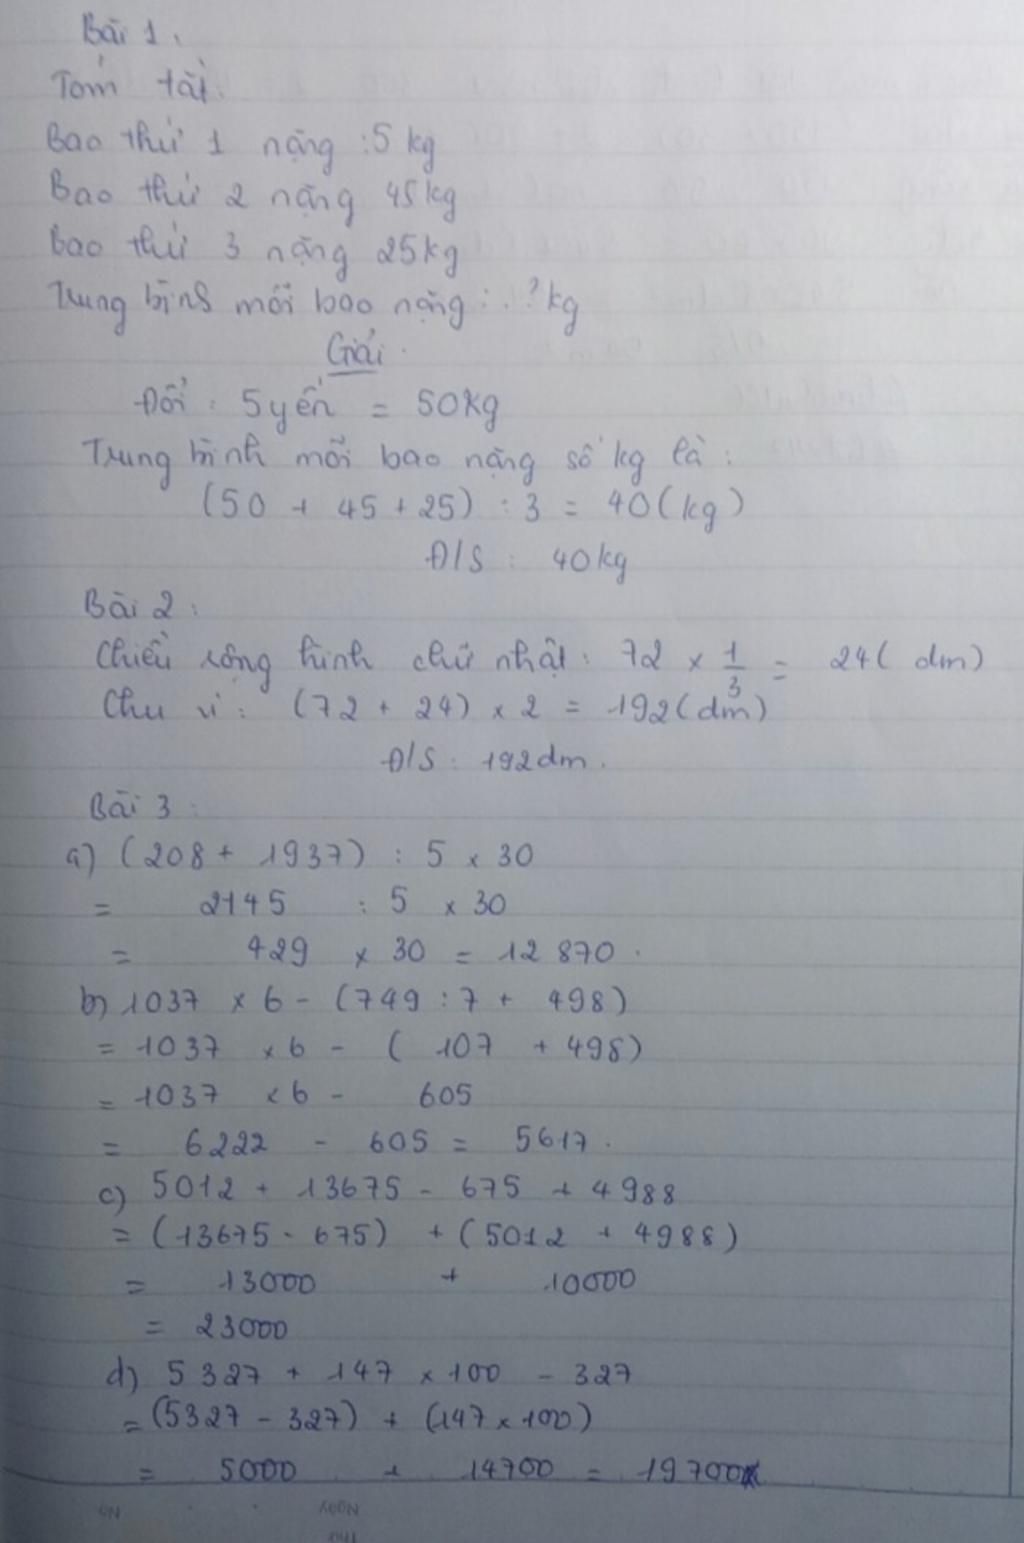 Bài 1.
Tóm tắt.
Bao thứ 1 nặng : 5 kg
Bao thứ 2 nặng 45kg
Bao thứ 3 nặng 25kg
Trung bình mỗi bao nặng : .? kg
Giải.
Đổi : 5 yến = 50kg
Trung bình mỗi bao nặng số kg là :
(50 + 45 + 25) : 3 = 40 (kg)
Đ/S : 40 kg
Bài 2 :
Chiều rộng hình chữ nhật : 72 x 1/3 = 24 ( dm)
Chu vi : (72 + 24) x 2 = 192 (dm)
Đ/S : 192dm.
Bài 3 :
a) (208 + 1937) : 5 x 30
= 2145 : 5 x 30
= 429 x 30 = 12 870.
b) 1037 x 6 - (749 : 7 + 498)
= 1037 x 6 - ( 107 + 498)
= 1037 x 6 - 605
= 6222 - 605 = 5617.
c) 5012 + 13675 - 675 + 4988
= (13675 - 675) + (5012 + 4988)
= 13000 + 10000
= 23000
d) 5327 + 147 x 100 - 327
= (5327 - 327) + (147 x 100)
= 5000 + 14700 = 19700